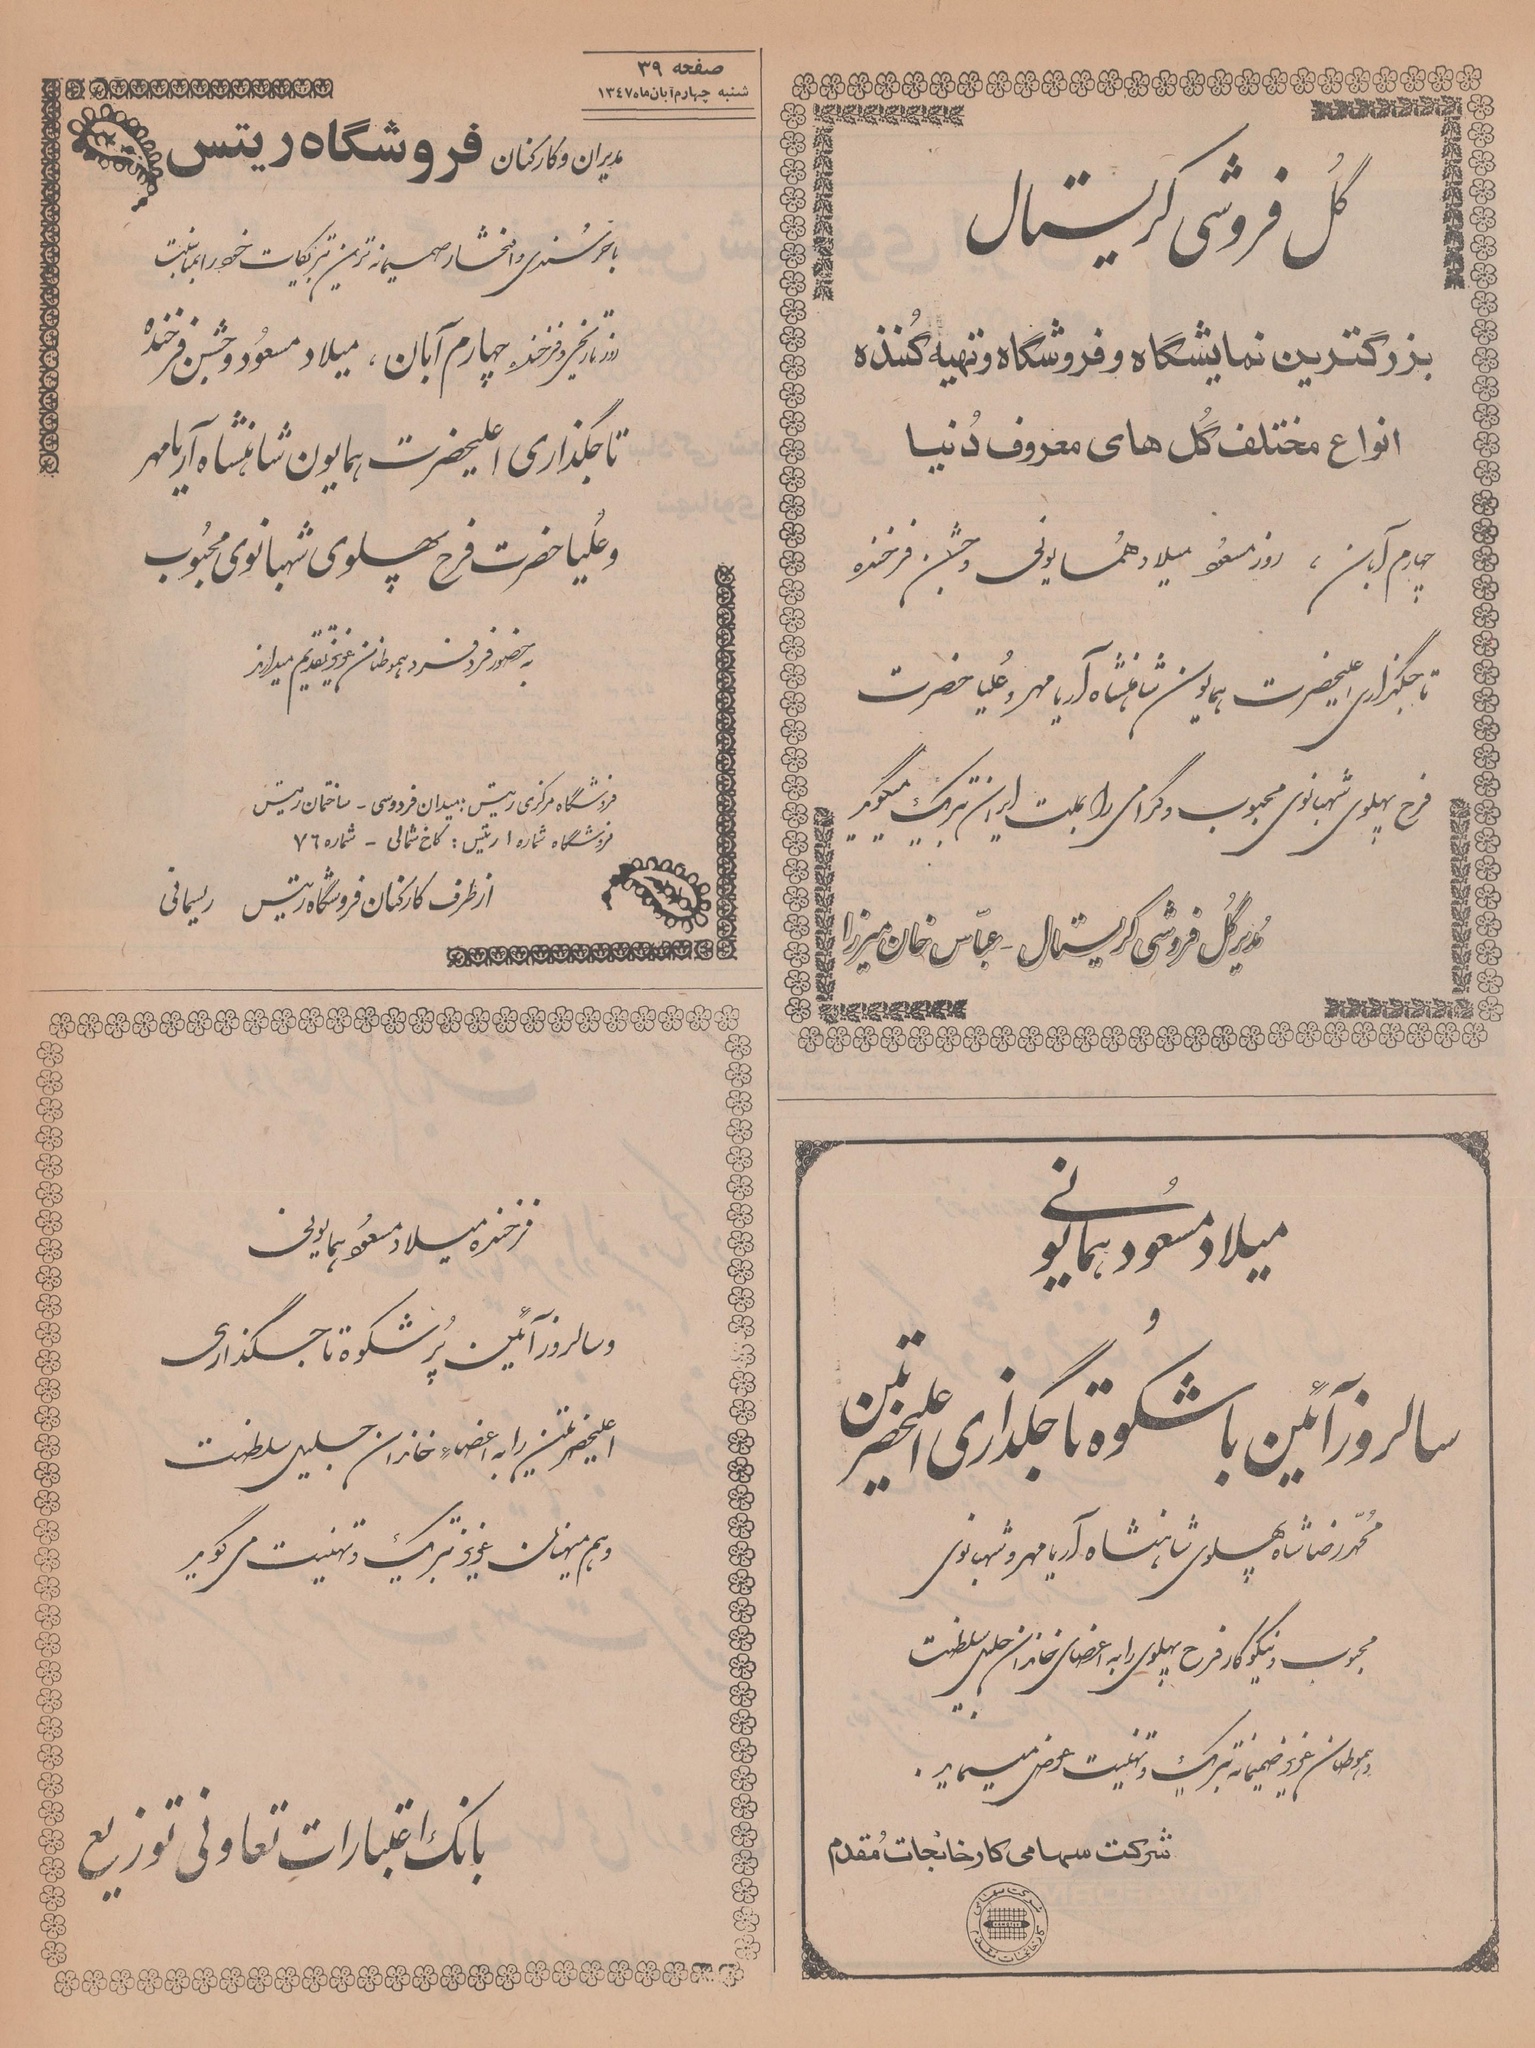 صفحه ۳۹
شنبه چهارم آبان ماه ۱۳٤۷
گل فروشی کریستال
بزرگترین نمایشگاه و فروشگاه و تهیه کننده
انواع مختلف گل های معروف دنیا
چهارم آبان ، روز مسعود میلاد همایونی و جشن فرخنده
تاجگذاری اعلیحضرت همایون شاهنشاه آریامهر و علیا حضرت
فرح پهلوی شهبانوی محبوب و گرامی را بملت ایران تبریک میگوید
مدیر گل فروشی کریستال - عباس خان میرزا
مدیران و کارکنان فروشگاه ریتس
با خرسندی و افتخار صمیمانه ترین تبریکات خود را بمناسبت
روز تاریخی و فرخنده چهارم آبان ، میلاد مسعود و جشن فرخنده
تاجگذاری اعلیحضرت همایون شاهنشاه آریامهر
و علیا حضرت فرح پهلوی شهبانوی محبوب
به حضور فرد فرد هموطنان عزیز تقدیم میدارند
فروشگاه مرکزی ریتس : میدان فردوسی - ساختمان ریتس
فروشگاه شماره ۱ ریتس : کاخ شمالی - شماره ۷٦
از طرف کارکنان فروشگاه ریتس ریسمانی
میلاد مسعود همایونی
و
سالروز آئین با شکوه تاجگذاری اعلیحضرتین
محمد رضا شاه پهلوی شاهنشاه آریامهر و شهبانوی
محبوب و نیکوکار فرح پهلوی را به اعضای خاندان جلیل سلطنت
و هموطنان عزیز صمیمانه تبریک و تهنیت عرض مینماید .
شرکت سهامی کارخانجات مقدم
شرکت سهامی
کارخانجات مقدم
فرخنده میلاد مسعود همایونی
و سالروز آئین پر شکوه تاجگذاری
اعلیحضرتین را به اعضاء خاندان جلیل سلطنت
و هم میهنان عزیز تبریک و تهنیت می گوید
بانک اعتبارات تعاونی توزیع